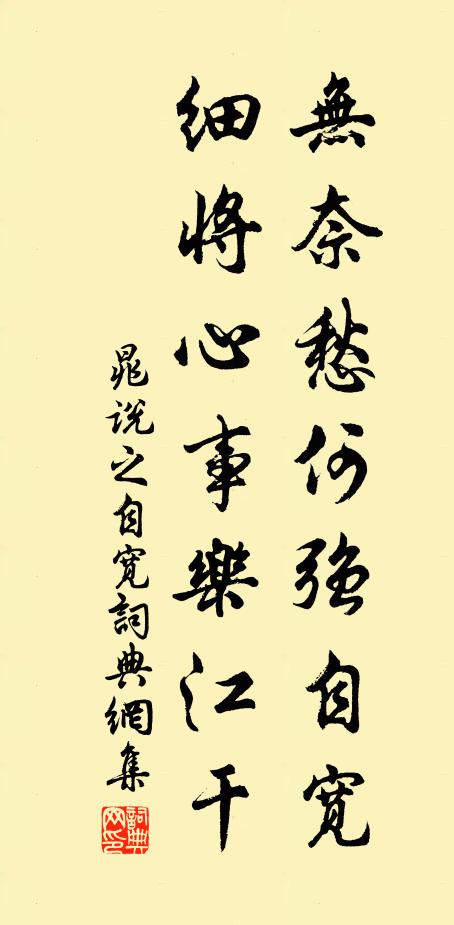 無奈愁何強自寬
細將心事樂江干
晁說之自寬詞典網集
詞典網印